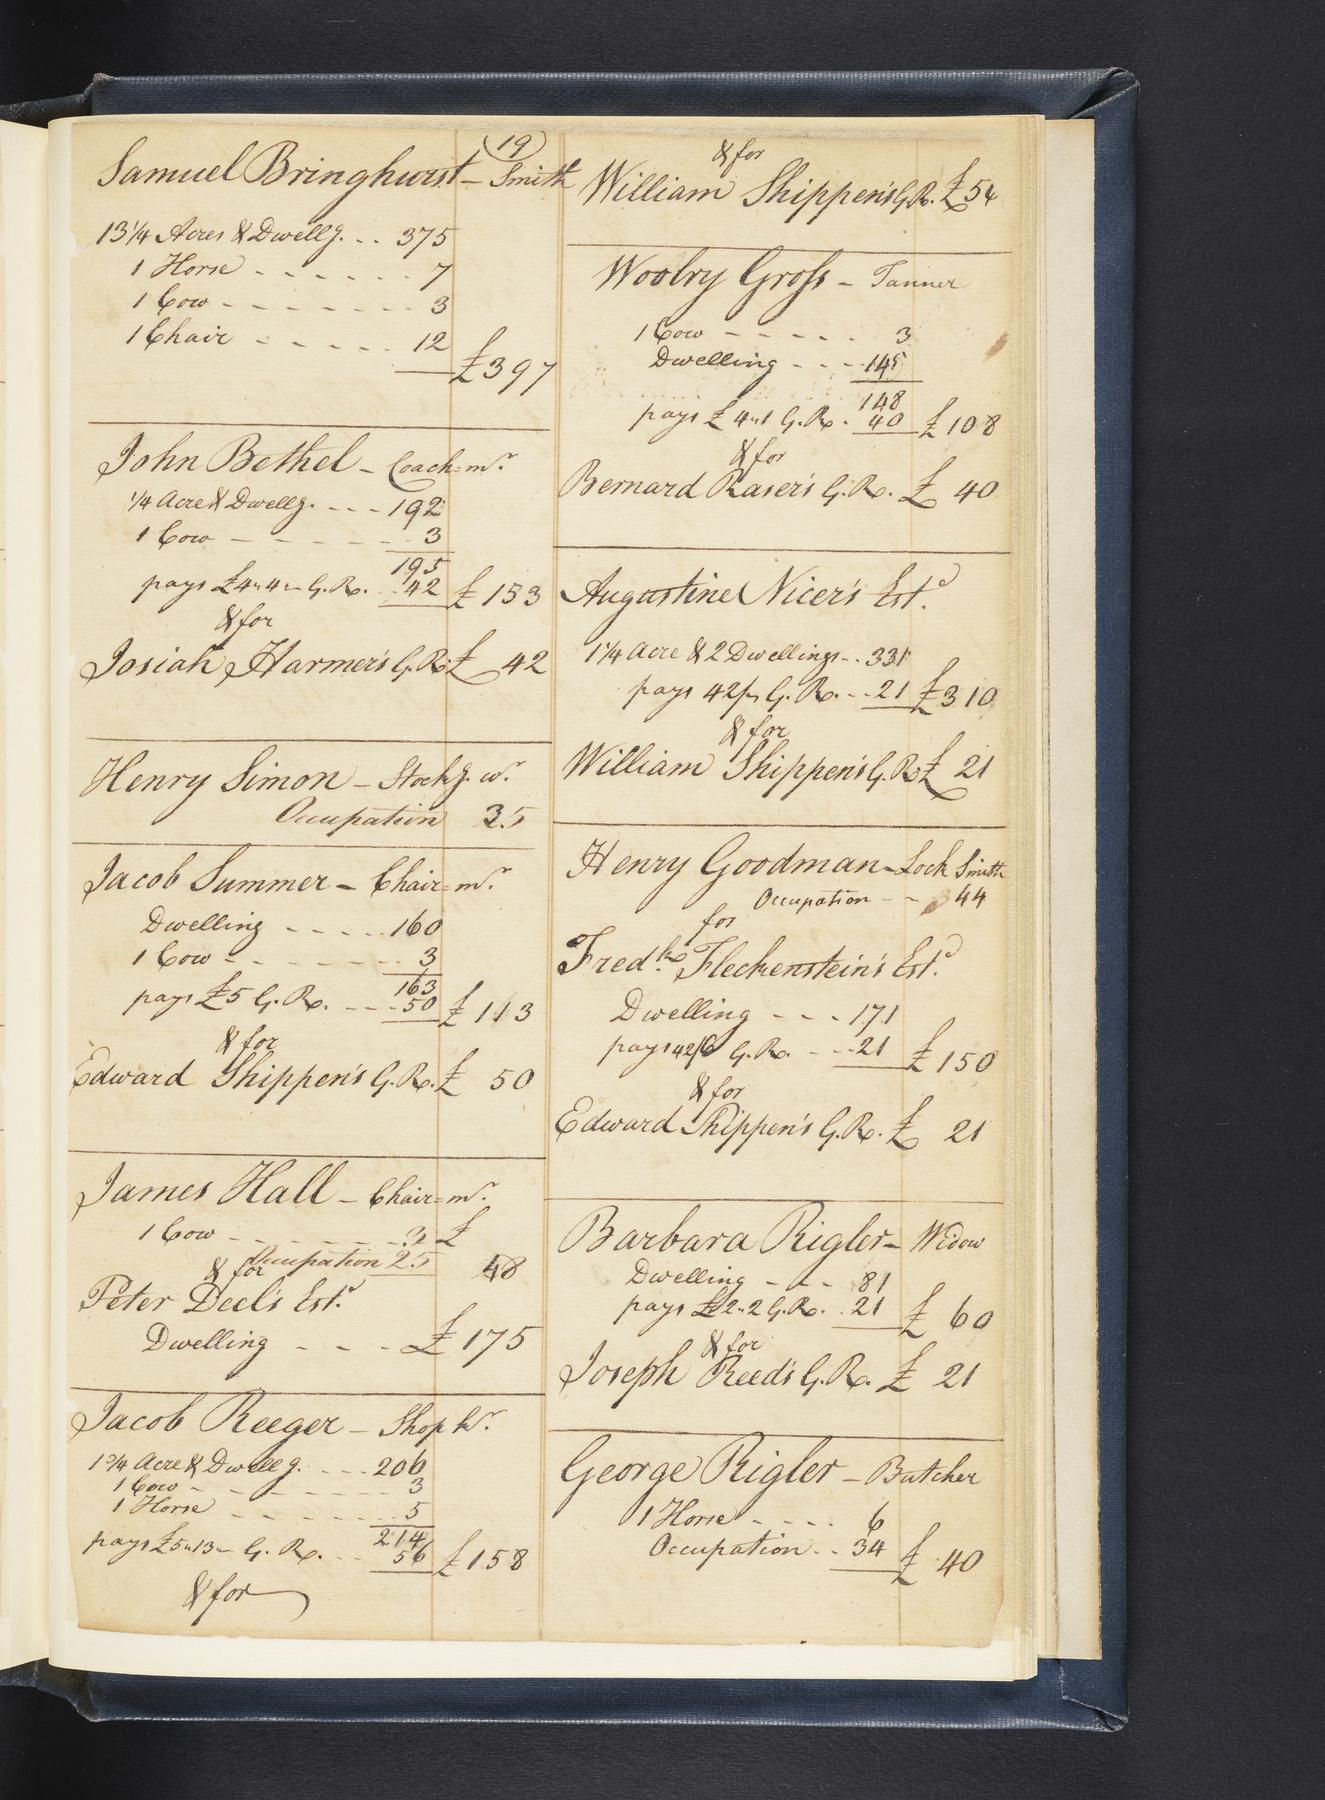 19
Samuel Bringhurst - Smith
13 1/4 Acres & Dwellg. .. 375
1 Horse - - - - - - 7
1 Cow - - - - - - - 3
1 Chair - - - - - 12
£397
John Bethel - Coach=mr.
1/4 Acre & Dwellg. - - - 192
1 Cow - - - - - - - 3
195
pays £4"4- G. R. .. 42 £ 153
& for
Josiah Harmer's G. R. £ 42
Henry Simon - Stockg. wr.
Occupation 35
Jacob Summer - Chair=mr.
Dwelling - - - - 160
1 Cow - - - - - - - 3
163
pays £5 G. R. - - - 50 £ 113
& for
Edward Shippen's G. R. £ 50
James Hall - Chair=mr.
1 Cow - - - - - - - 3 £
Occupation 25 48
& for
Peter Deel's Estd.
Dwelling - - - - £ 175
Jacob Reeger - Shop kr.
1 3/4 Acre & Dwellg. - - - 206
1 Cow - - - - - - - 3
1 Horse - - - - - - 5
214
pays £5"13- G. R. - - - 56 £ 158
& for
& for
William Shippen's G. R. £54
Woolry Gross - Tanner
1 Cow - - - - - 3
Dwelling - - - 145
148
pays £4"1 G. R. . 40 £ 108
& for
Bernard Raser's G. R. £ 40
Augustine Nicer's Estd.
1 1/4 Acre & 2 Dwellings - . 331
pays 42/- G. R. - - 21 £310
& for
William Shippen's G. R. £ 21
Henry Goodman - Lock Smith
Occupation - - 44
for
Fredk. Fleckenstein's Estd.
Dwelling - - - 171
pays 42/6 G. R. - - - 21 £ 150
& for
Edward Shippen's G. R. £ 21
Barbara Rigler - Widow
Dwelling - - - 81
pays £2"2 G. R. . 21 £ 60
& for
Joseph Reed's G. R. £ 21
George Rigler - Butcher
1 Horse - - - - 6
Occupation . . 34 £ 40